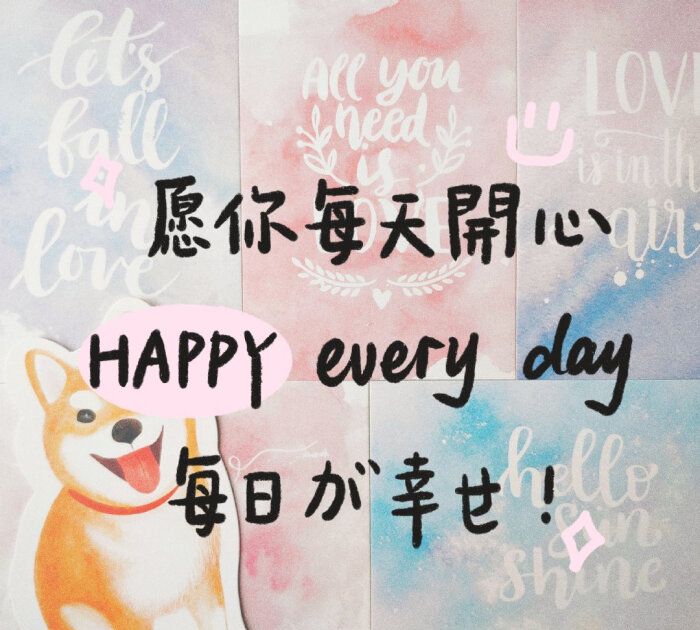 let's
fall
in
love
All you
need
is
LOVE
LOVE
is in the
air
愿你每天開心
HAPPY every day
毎日が幸せ！
hello
Sun
Shine